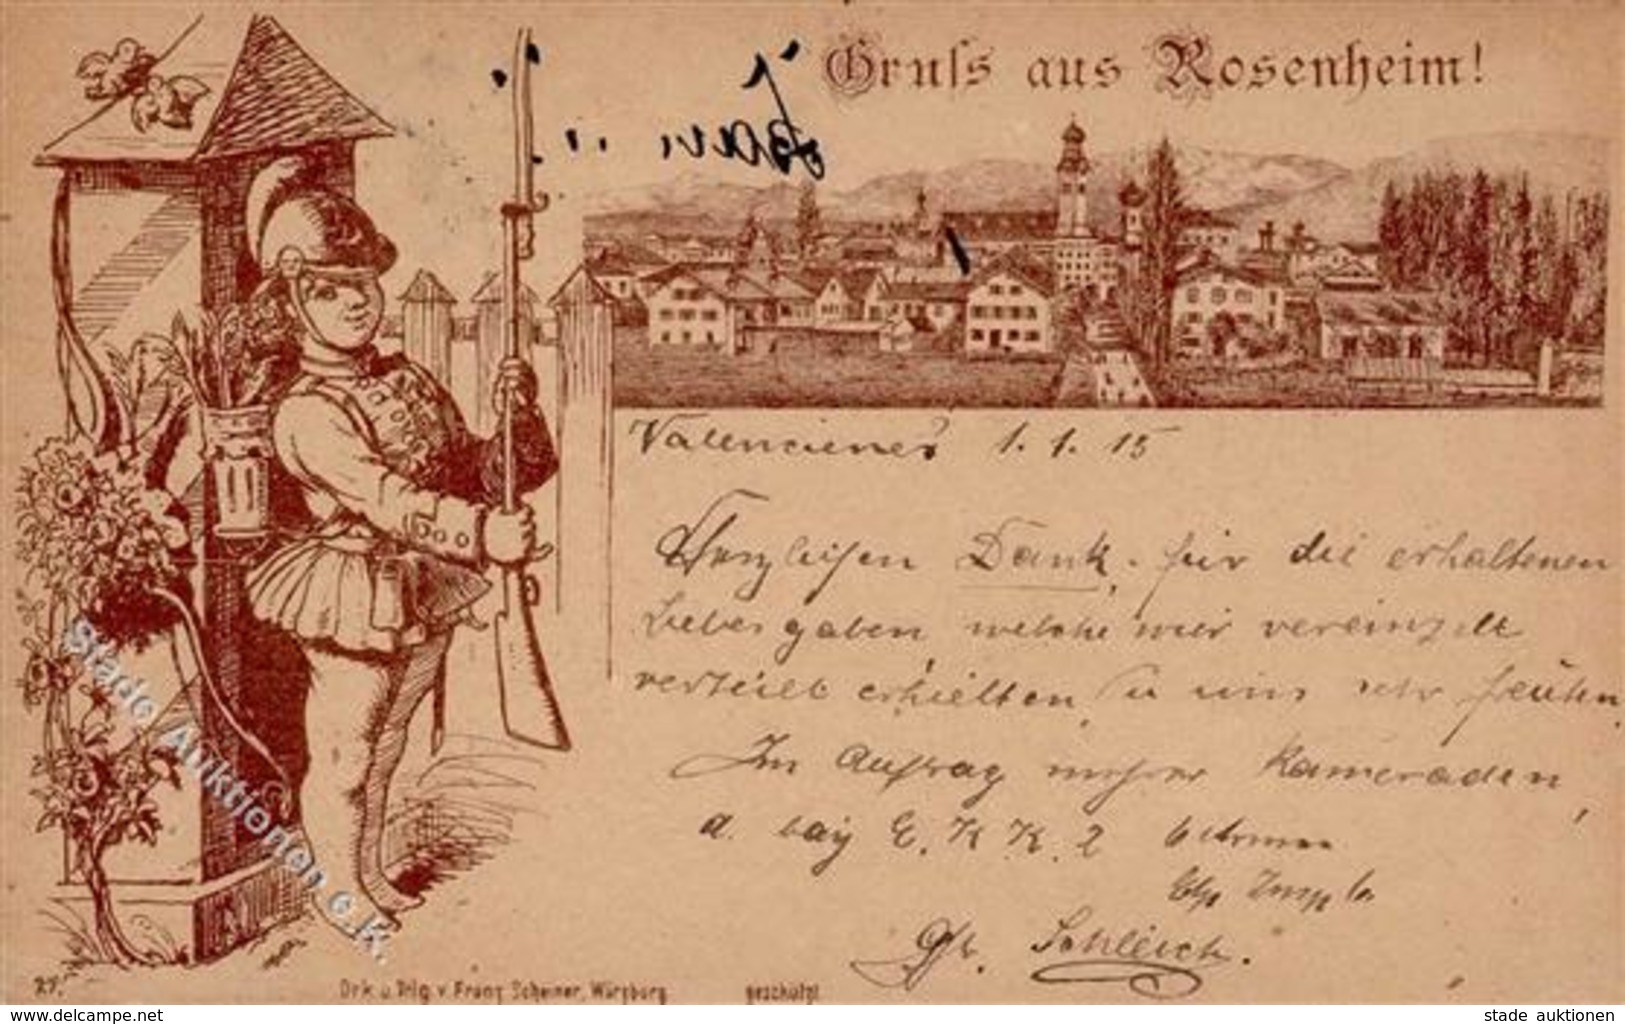 Gruſs aus Rosenheim!
Valencienes 1. 1. 15
Herzlichen Dank, für die erhaltenen
Liebesgaben, welche wir vereinzelt
verteilt erhielten, u uns sehr freuten.
Im Auftrag mehrer Kameraden,
d. bay E. K. K. 2
Gfr. Schleich.
27.
Drk u. Vrlg v. Franz Scheiner, Würzburg
geschützt
Stade Auktionen e.K.
www.delcampe.net
stade auktionen